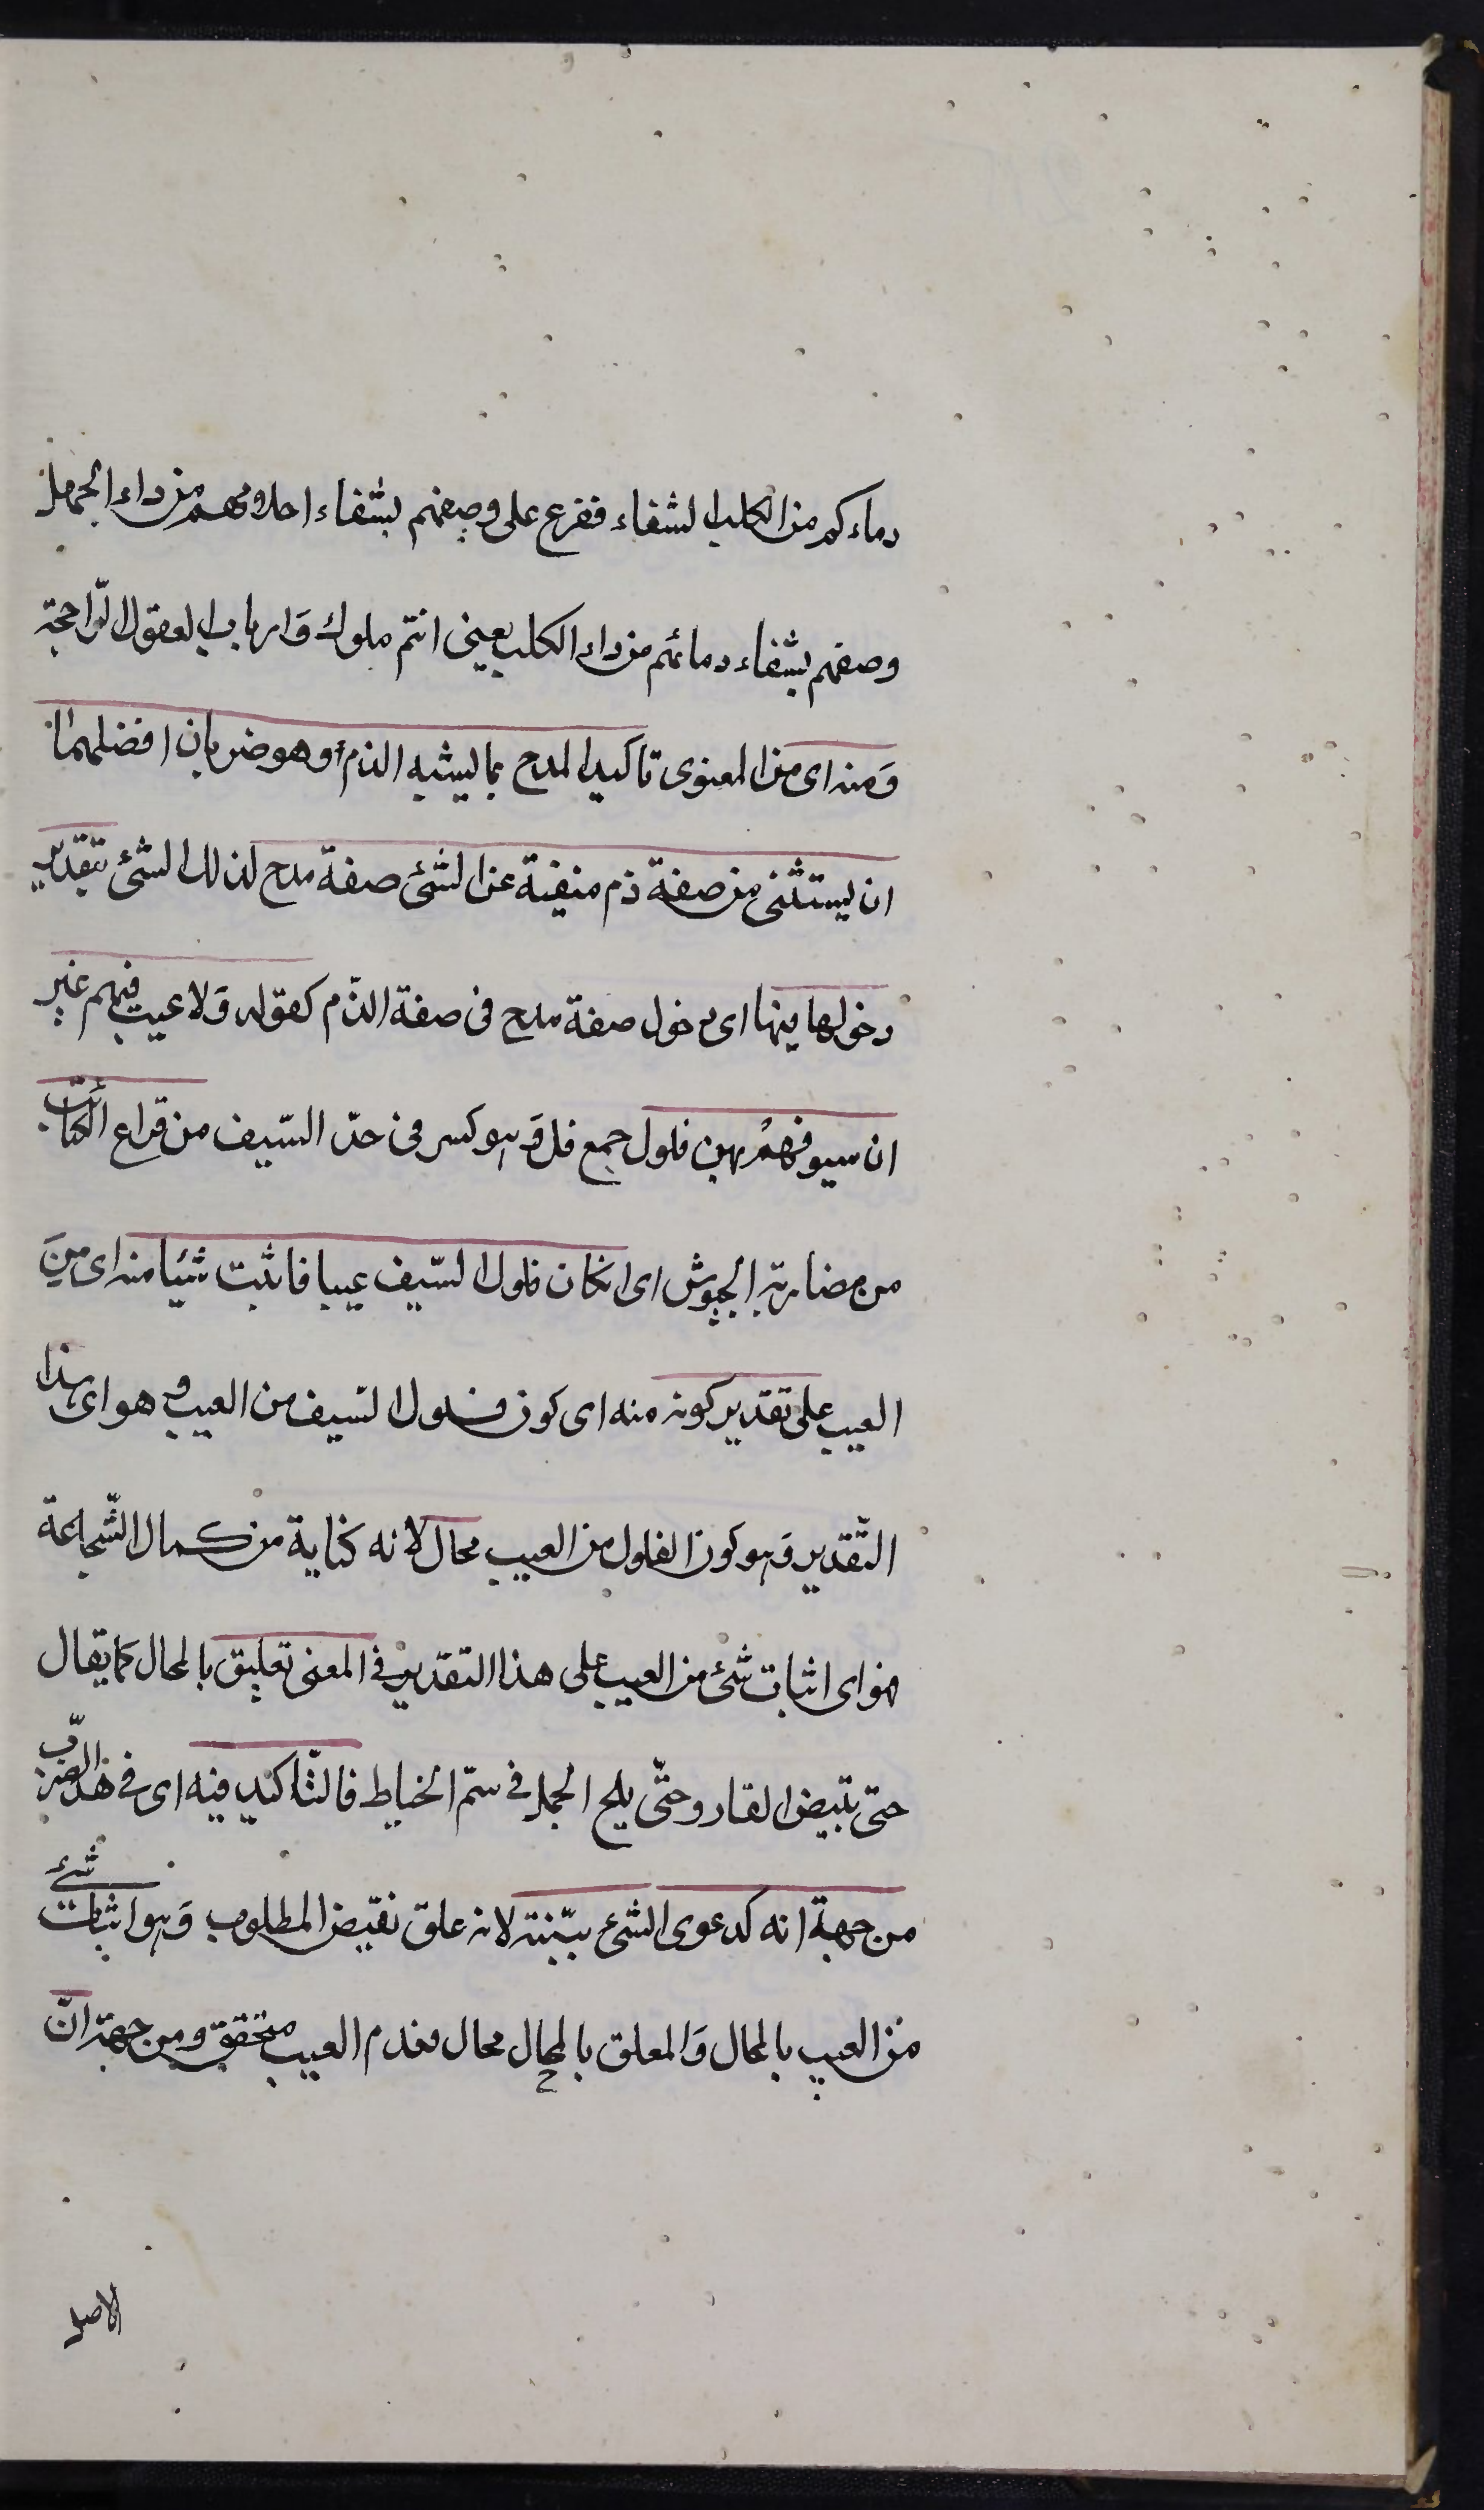 دماءكم من الكلب الشفاء ففرع على وصفهم بشفاء احلامهم من داء الجهل
وصفهم بشفاء دمائهم من داء الكلب يعنى انتم ملوك وَارباب العقول الرّاجحة
وَمنه اى من المعنوى تاكيد المدح بما يشبه الذم وهو ضربان افضلهما
ان يستثنى من صفة ذم منفية عن الشئ صفة مدح لذلك الشئ بتقدير
دخولها فيها اى دخول صفة مدح فى صفة الذّم كقوله وَلا عيب فيهم غير
ان سيوفهمُ بهن فلول جمع فل وَهو كسر فى حدّ السّيف من قراع الكتائب
من مضاربة الجيوش اى ان كان فلول السّيف عيبا فاثبت شيئا منه اى مِنَ
العيب على تقدير كونه منه اى كون فلول السّيف من العيب و هو اى هذا
التّقدير وَهو كون الفلول من العيب محال لانه كناية من كمال الشّجاعة
فهو اى اثبات شئ من العيب على هذا التقدير فى المعنى تعليق بالمحال كما يقال
حتى تبيض القار وحتّى يلج الجمل فى سمّ الخياط فالتّاكيد فيه اى فى هذا الضّرب
من جهة انه كدعوى الشئ ببّينة لانه علق نقيض المطلوب وَهو اثبات شئ
من العيب بالمحال وَالمعلق بالمحال محال فعدم العيب متحقق ومن جهة انّ
الاصل